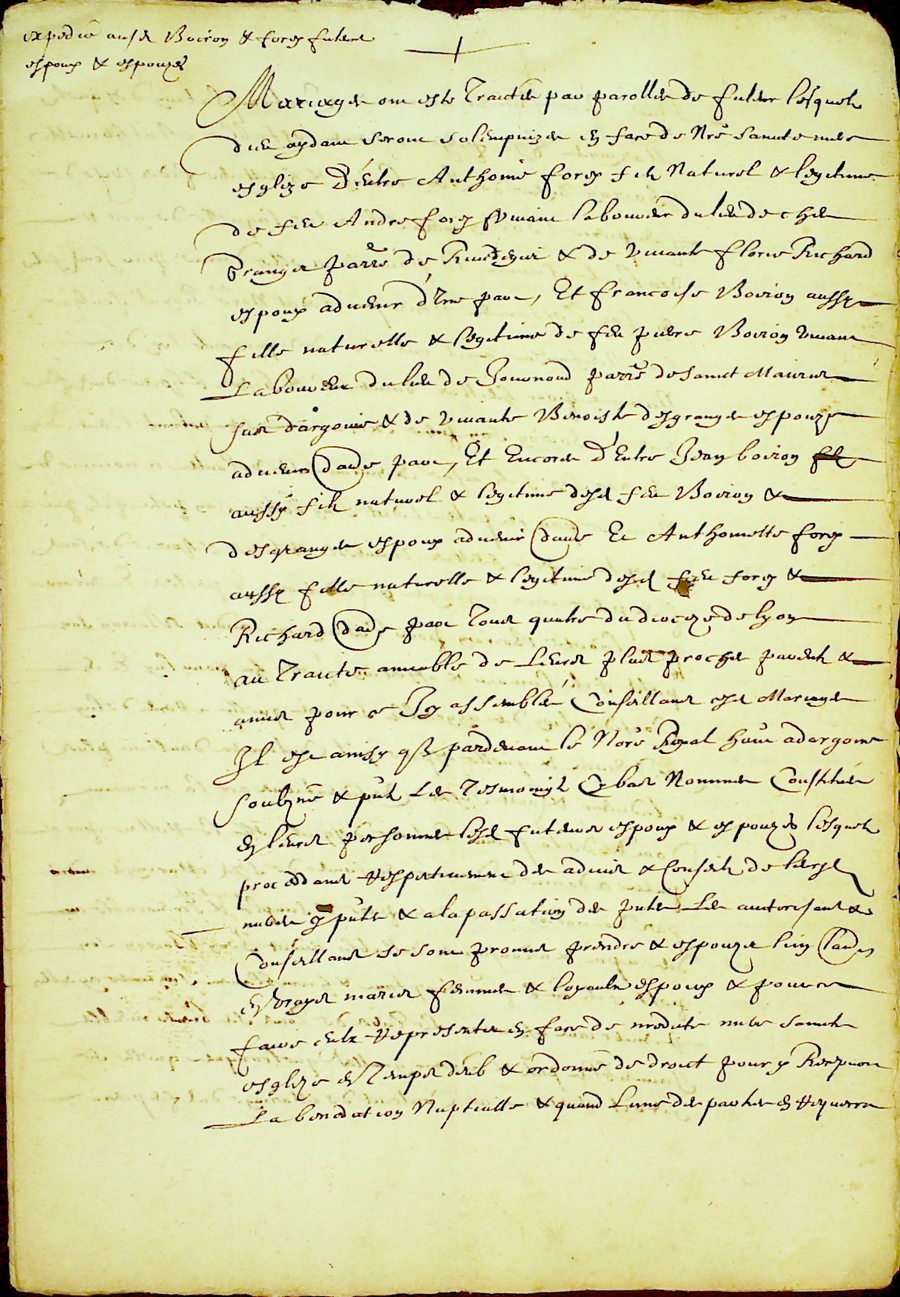 expedié ausd Boiron & forez futurs
espoux & espouzes
Mariages ont esté Traictés par parolles de futur lesquels
dieu aydant seront solempnizés en face de Nre saincte mere
esglize D'entre Anthoine forez fils Naturel & legitime
de feu Andre forez vivant laboureur du lieu de chez
Granger parre de & de vivante florie Richard
espoux advenir d'Une part, Et francoise Boiron aussy
fille naturelle & legitime de feu pierre Boiron vivant
Laboureur du lieu de parre de sainct Maurice
sur dargoire & de vivante Benoiste desgranges espouze
advenir d'autre part, Et Encores d'Entre Jean boiron
aussy fils naturel & legitime desd feu Boiron &
desgranges espoux advenir d'une Et Anthoinette forez
aussy fille naturelle & legitime desd feu forez &
Richard d'autre part Tous quatre du dioceze de lyon
au Traicté amiable de Leurs plus proches parents &
amis pour ce Icy assemblés Conseillants esd Mariages
Il est ainsy q3 pardevant le Nore Royal here adargoire
soubzné & pnts Les Tesmoings Cy bas Nommes Constitués
en leurs personnes lesd futeurs espoux & espouzes lesquels
proceddants respectivement des advis & Conseils de leursd
meres cy pntes & a la passation des pntes Les authorisant &
Conseillants se sont promis prendre & espouzer l'un l'autre
En vrayes maris femmes & loyaulx espoux & pour ce
faire eulx representer en face de nredite mere saincte
esglize en Temps deub & ordonné de droict pour y Recepvoir
La benediction Nuptialle & quand L'une des parties en requerra